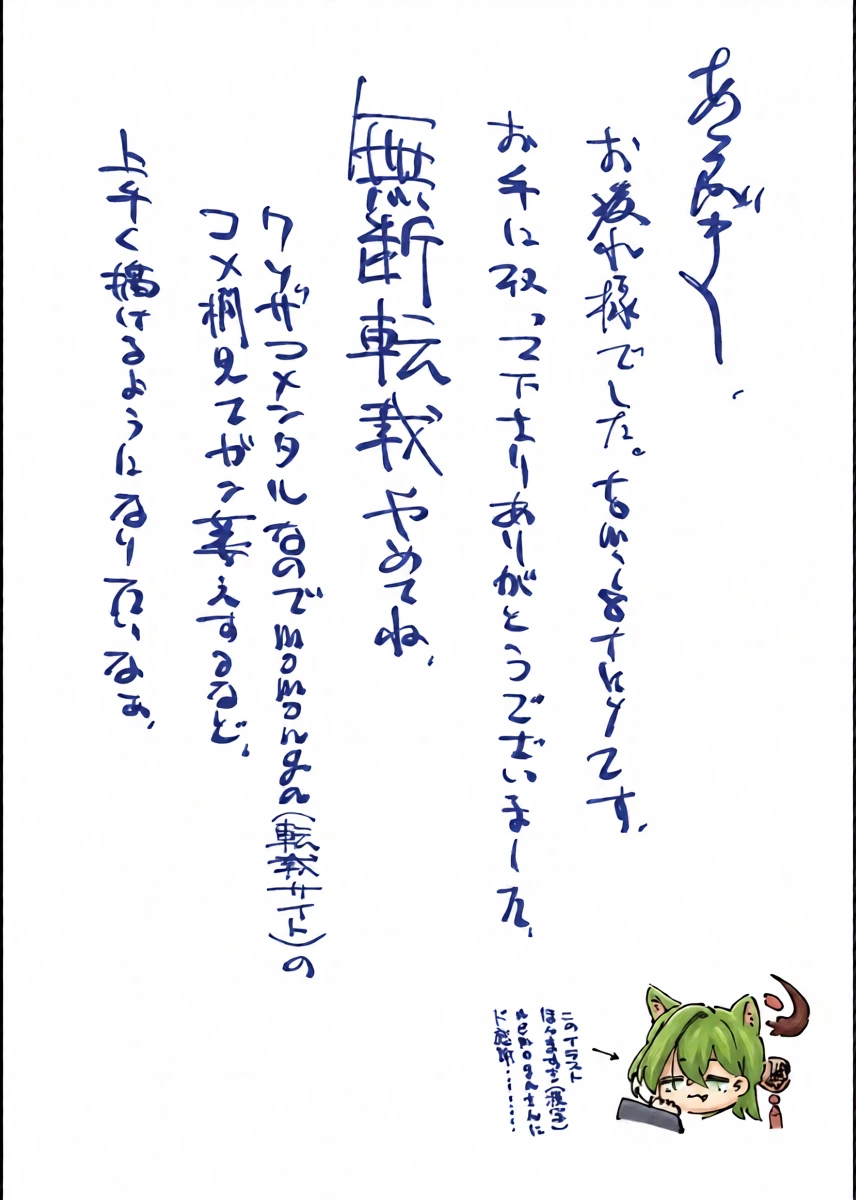 あとがき
お疲れ様でした。
お手に取って下さりありがとうございました、
無断転載やめてね、
クソザコメンタルなのでmomonga(転載サイト)の
コメ欄見てガン萎えするなど、
上手く描けるようになり てぃなぁ、
このイラスト
ほんますき(漢字)
nemogaさんに
ド感謝.......